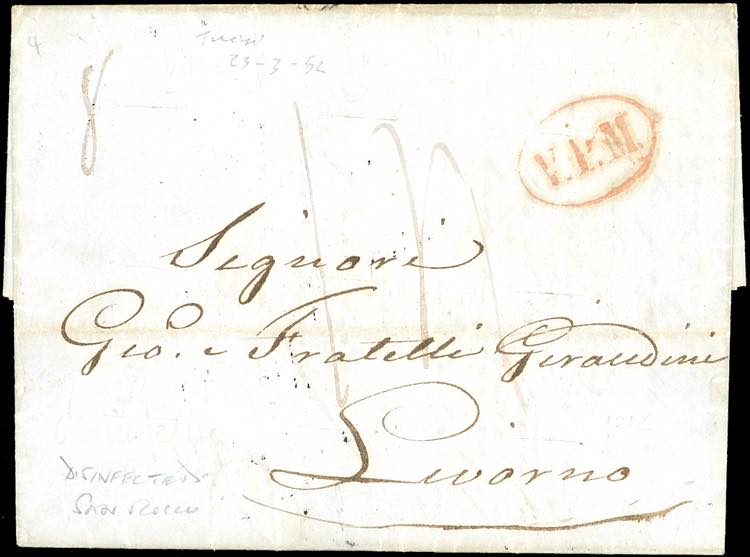 4
Tunisi
23-3-52
8
V.E.M.
Signori
Gio. e Fratelli Giraudini
Livorno
DISINFECTED
SAN ROCCO